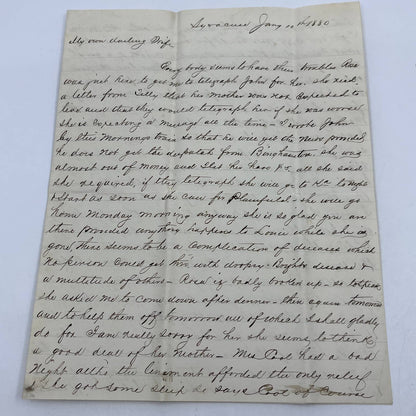 Syracuse Jany 10th 1880
My own darling Wife
Every body seems to have their troubles Rose
was just here to get me to telegraph John for her. she recd
a letter from Tilly that her mother was not expected to
live and that they would telegraph her if she was worse
she is expecting a message all the time - I wrote John
by this mornings train so that he will get the news provided
he does not get the despatch from Binghamton. she was
almost out of money and I let her have $5. all she said
she required, if they telegraph she will go to to night
& start as soon as she can for Plainfield - she will go
home Monday morning anyway she is so glad you are
there provided anything happens to Louie while she is
gone There seems to be a complication of diseases which
no person could get them with dropsy - Brights disease &
a multitude of others - Rosa is badly broken up - so
she asked me to come down after dinner - then again tomorrow
and to help them off tomorrow all of which I shall gladly
do for I am really sorry for her she seems to think
a good deal of her mother - Mrs Cool had a bad
night all the liniment afforded the only relief
& she got some sleep he says Cool of course